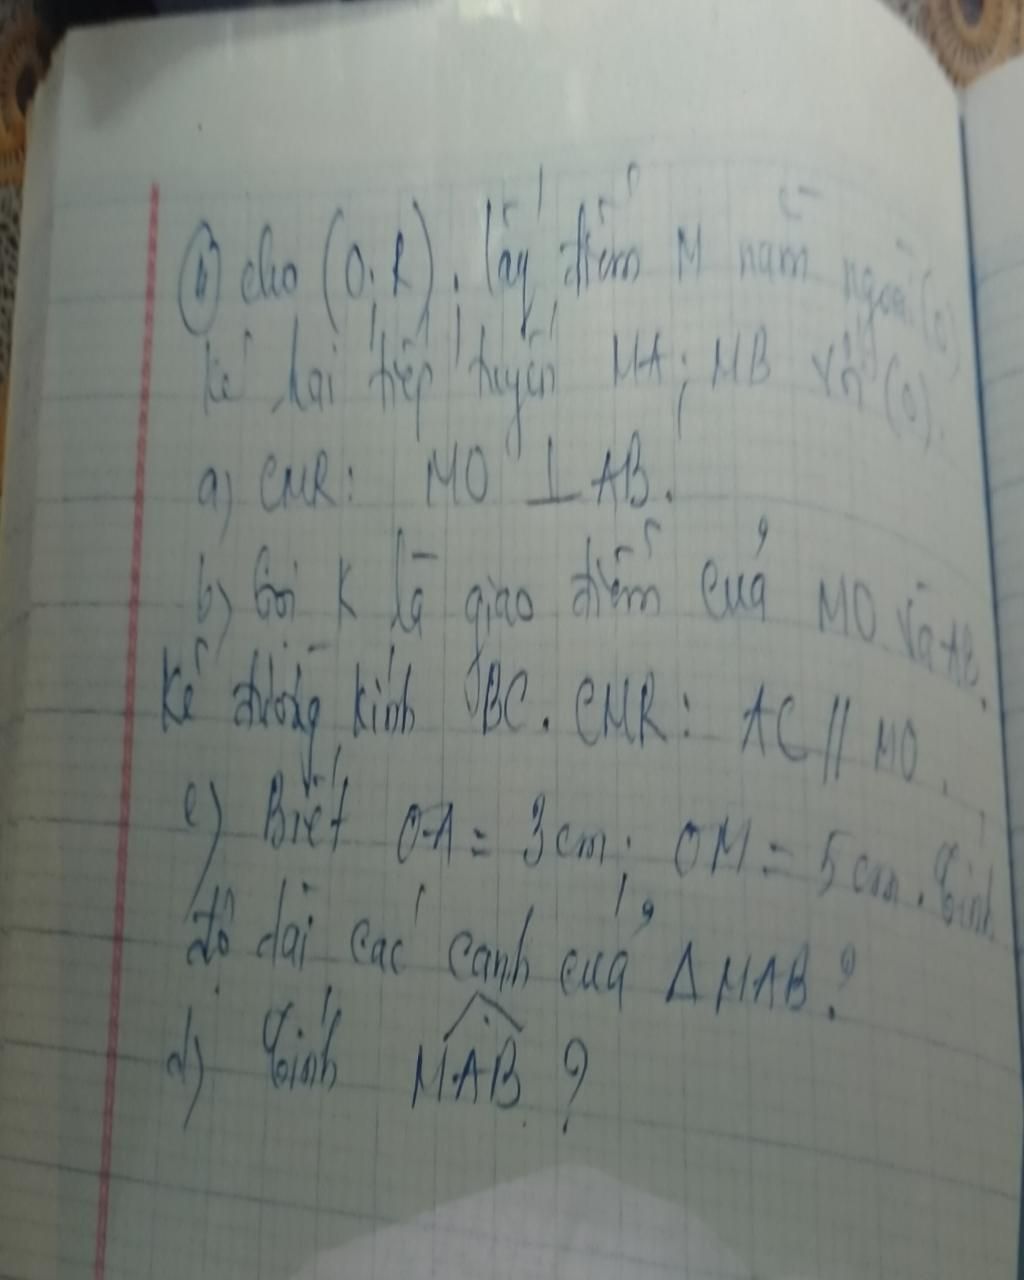 cho (O;R). lấy điểm M nằm ngoài (O)
kẻ hai tiếp tuyến MA; MB với (O).
a) CMR: MO ⊥ AB.
b) Gọi K là giao điểm của MO và AB.
Kẻ đường kính BC. CMR: AC // MO.
c) Biết OA = 3cm; OM = 5cm. Tính
độ dài các cạnh của Δ MAB?
d) Tính \widehat{MAB} ?